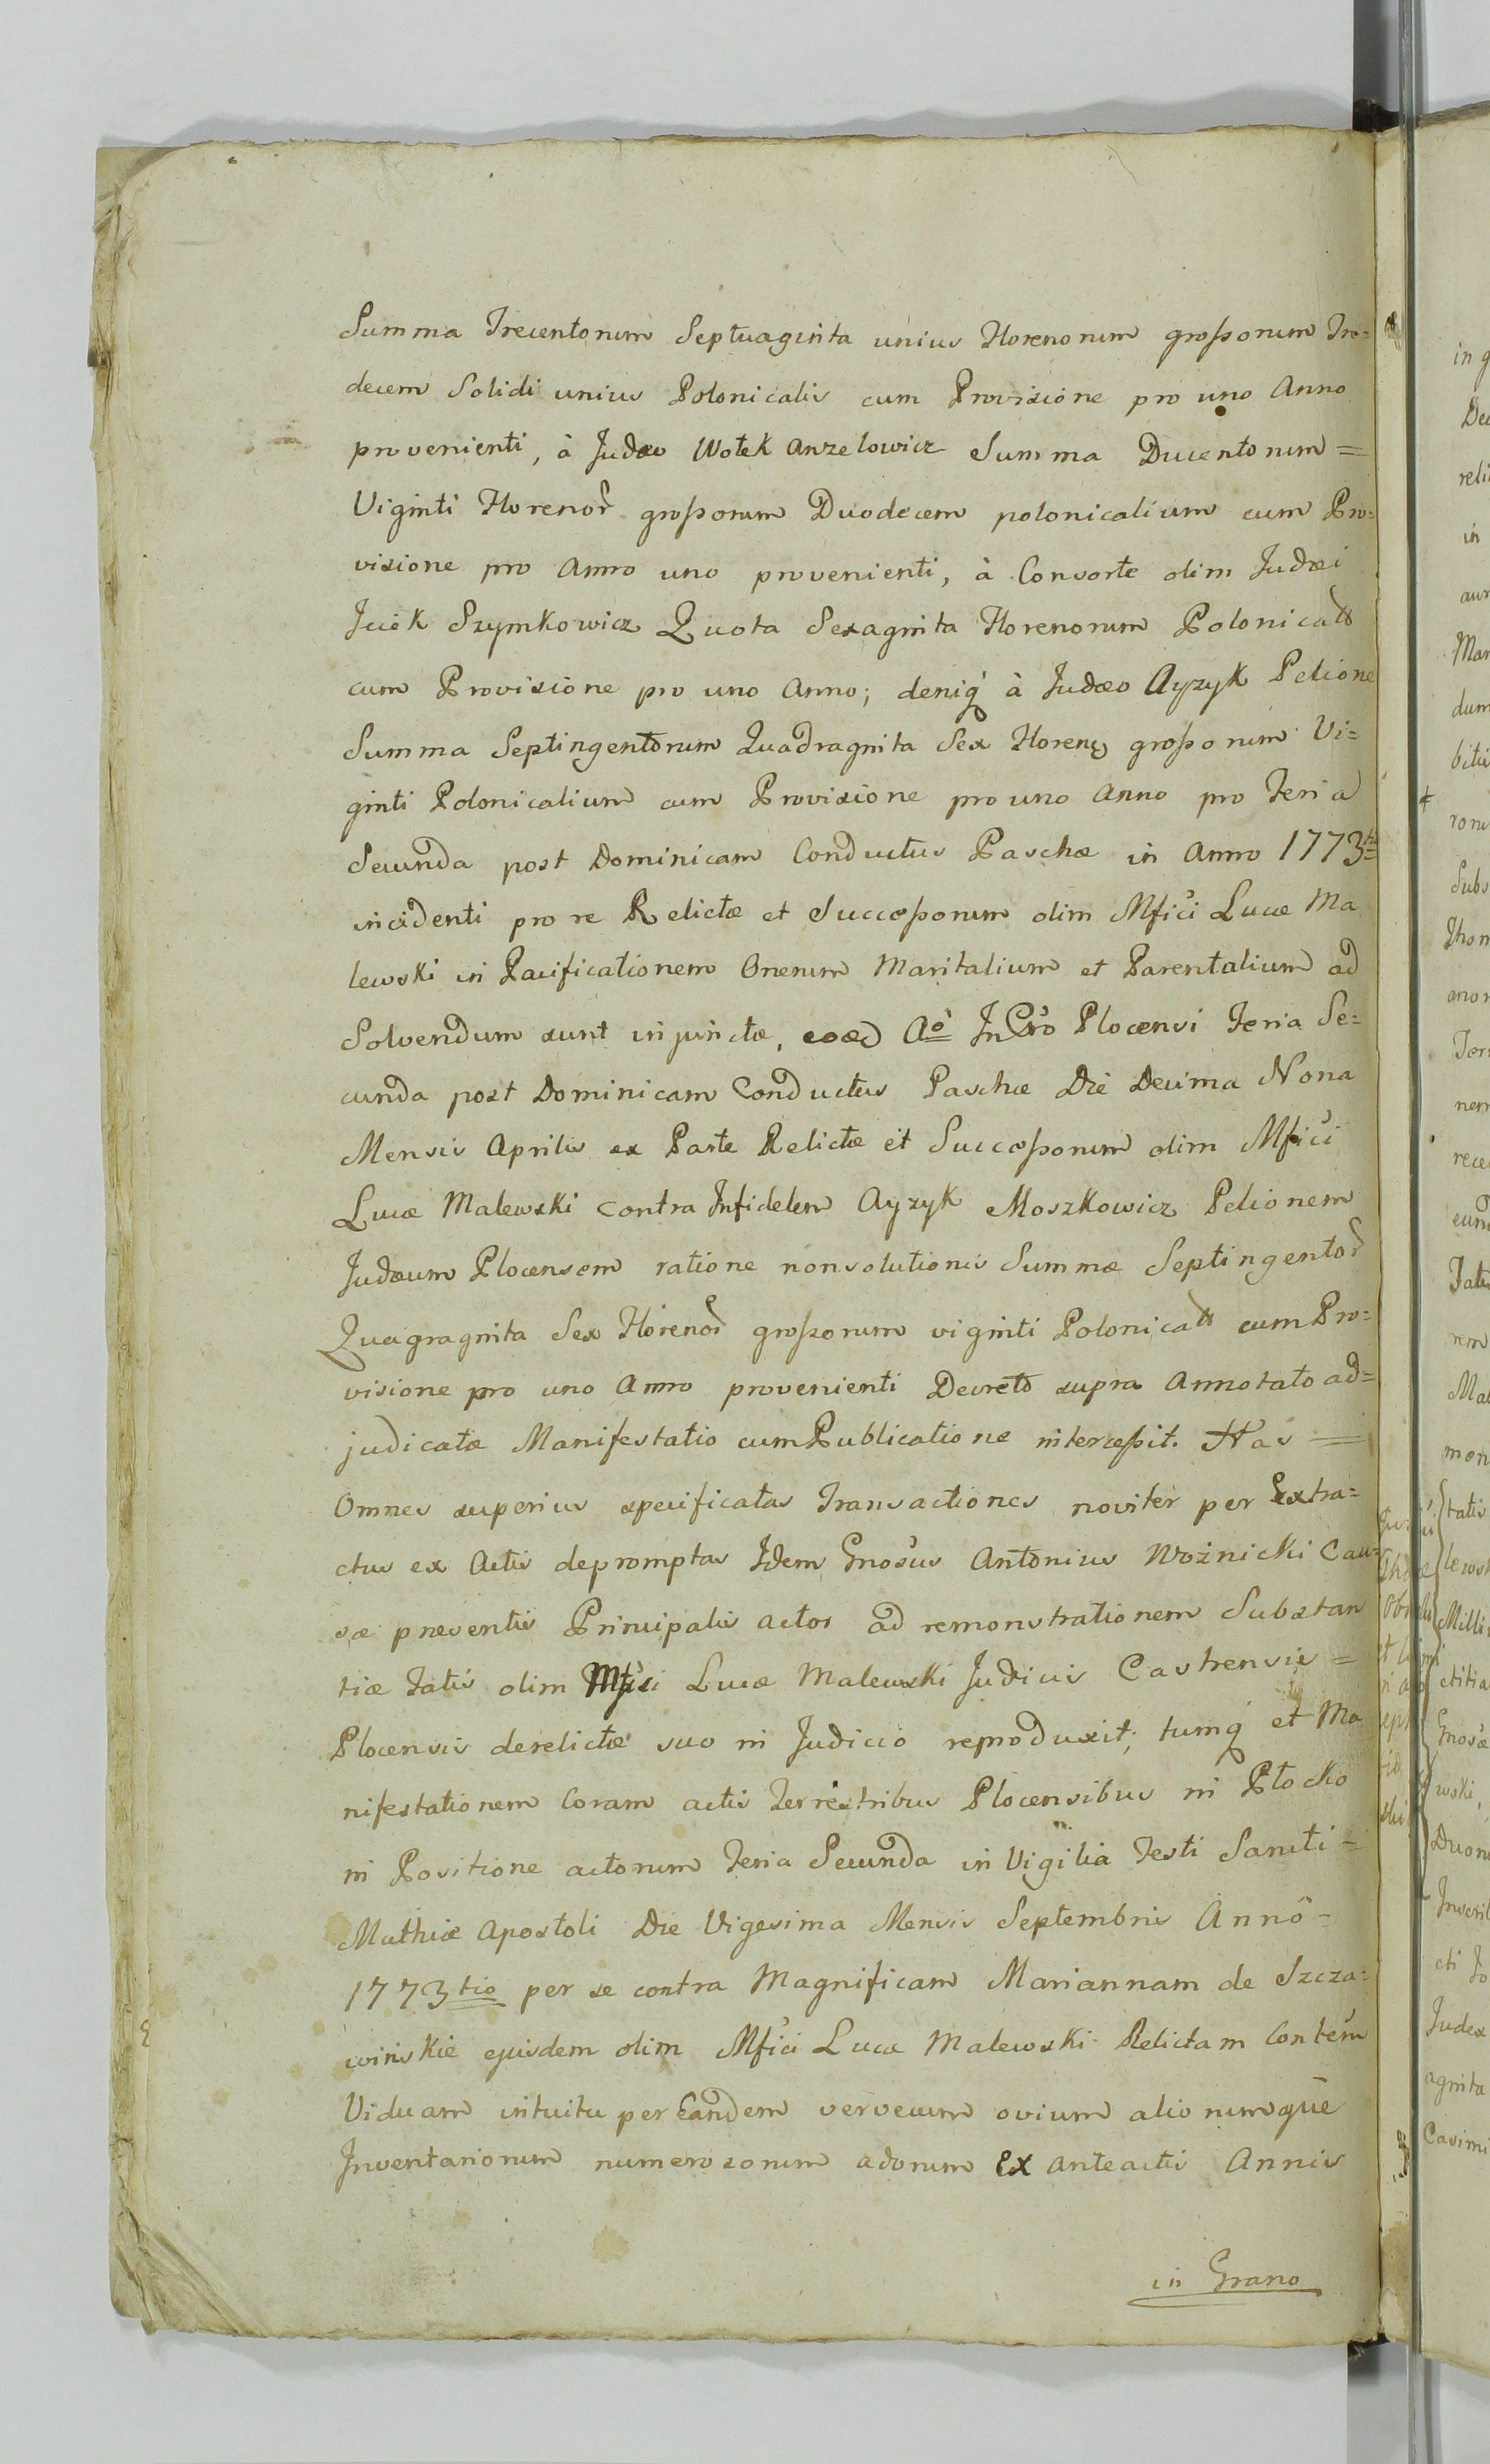 Summa Trecentorum Septuaginta unius Florenorum grossorum Tre=
decem Solidi unius Polonicalis cum Provisione pro uno Anno
provenienti, à Judæo Wolek Anzelowicz Summa Ducentorum =
Viginti Florenor̃ grossorum Duodecem polonicalium cum Pro=
visione pro Anno uno provenienti, à Consorte olim Judæi
Jcck Szymkowicz Quota Sexaginta Florenorum Polonicall
cum Provisione pro uno Anno; deniq́ à Judæo Ayzyk Pelione
Summa Septingentorum Quadraginta Sex Floren grossorum Vi=
ginti Polonicalium cum Provisione pro uno Anno pro Feria
Secunda post Dominicam Conductus Paschæ in Anno 1773tio
incidenti pro re Relictæ et Successorum olim Mfici Lucæ Ma
lewski in Pacificationem Onerum Maritalium et Parentalium ad
Solvendum sunt injunctæ, eoed Aõ In Cro Plocensi Feria Se=
cunda post Dominicam Conductus Paschæ Die Decima Nona
Mensis Aprilis ex Parte Relictæ et Successorum olim Mfici
Lucæ Malewski contra Infidelem Ayzyk Moszkowicz Pelionem
Judæum Plocensem ratione nonsolutionis Summæ Septingentor̃
Quagraginta Sex Florenor̃ grossorum viginti Polonicall cum Pro=
visione pro uno Anno provenienti Decreto supra Annotato ad=
judicatæ Manifestatio cum Publicatione intercessit. Has =
Omnes superius specificatas Transactiones noviter per Extra=
ctus ex Actis depromptas Idem Gnosus Antonius Woźnicki Cau=
sæ præsentis Principalis actor ad remonstrationem Substan
tiæ Tatis olim Mfici Lucæ Malewski Judicis Castrensis =
Plocensis derelictæ suo in Judicio reproduxit; tumq́ et Ma
nifestationem Coram actis Terrestribus Plocensibus in Płocko
in Positione actorum Feria Secunda in Vigilia Festi Sancti =
Mathiæ Apostoli Die Vigesima Mensis Septembris Annô =
1773tio per se contra Magnificam Mariannam de Szcza=
winskie ejusdem olim Mfici Lucæ Malewski Relictam Contem
Viduam intuitu per Eandem vervecum ovium aliorumque
Inventariorum numerosorum adorum Ex anteactis Annis
in Grano